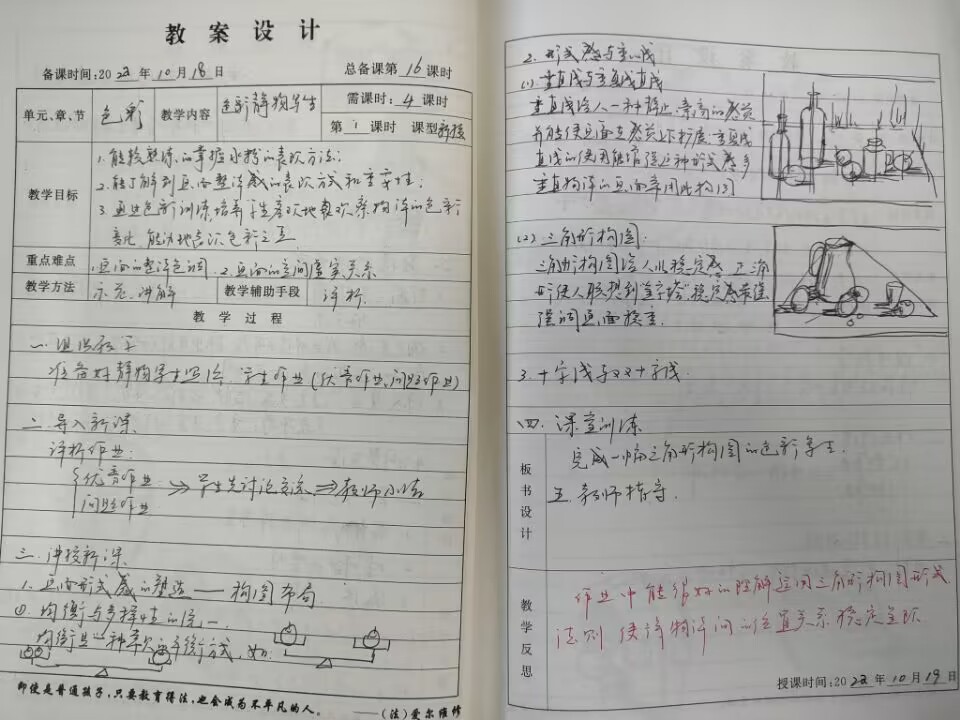 教案设计
备课时间:2022年10月18日 总备课第16课时
单元、章、节 色彩 教学内容 色彩静物写生 需课时:4课时
第1课时 课型新授
教学目标
1.能较熟练的掌握水粉的表现方法;
2.能了解到画面整体感的表现方式和重要性;
3.通过色彩训练,培养学生客观地表现景物体的色彩
变化,能动地表现色彩之美
重点难点 1.画面的整体色调 2.画面的空间虚实关系
教学方法 示范.讲解 教学辅助手段 评析
教学过程
一.组织教学
准备好静物写生写绘、学生作业(优秀作业、问题作业)
二.导入新课
评析作业:
优秀作业
问题作业
学生先讨论交流 教师小结
三.讲授新课
1.画面形式感的塑造——构图布局
①.均衡与多样性的统一.
均衡是一种平衡方式,如:
即使是普通孩子,只要教育得法,也会成为不平凡的人。
——(法)爱尔维修
2.形式感与主线
(1)垂直线与垂直线直线
垂直线给人一种静止、崇高的感觉
并能使画面在感觉上下扩展,垂直线
直线的使用能增强这种形式感.多
垂直物体的画面常用此构图
(2)三角形构图:
三角形构图给人以稳定感,正三角
形使人联想到“金字塔”稳定感最强
强调画面稳重.
3.十字线与双十字线.
四.课堂训练
完成一幅三角形构图的色彩写生.
五.教师指导.
板书设计
教学反思
作业中能很好的理解运用三角形构图形式
法则使诸物体间的位置关系稳定呈现
授课时间:2022年10月19日